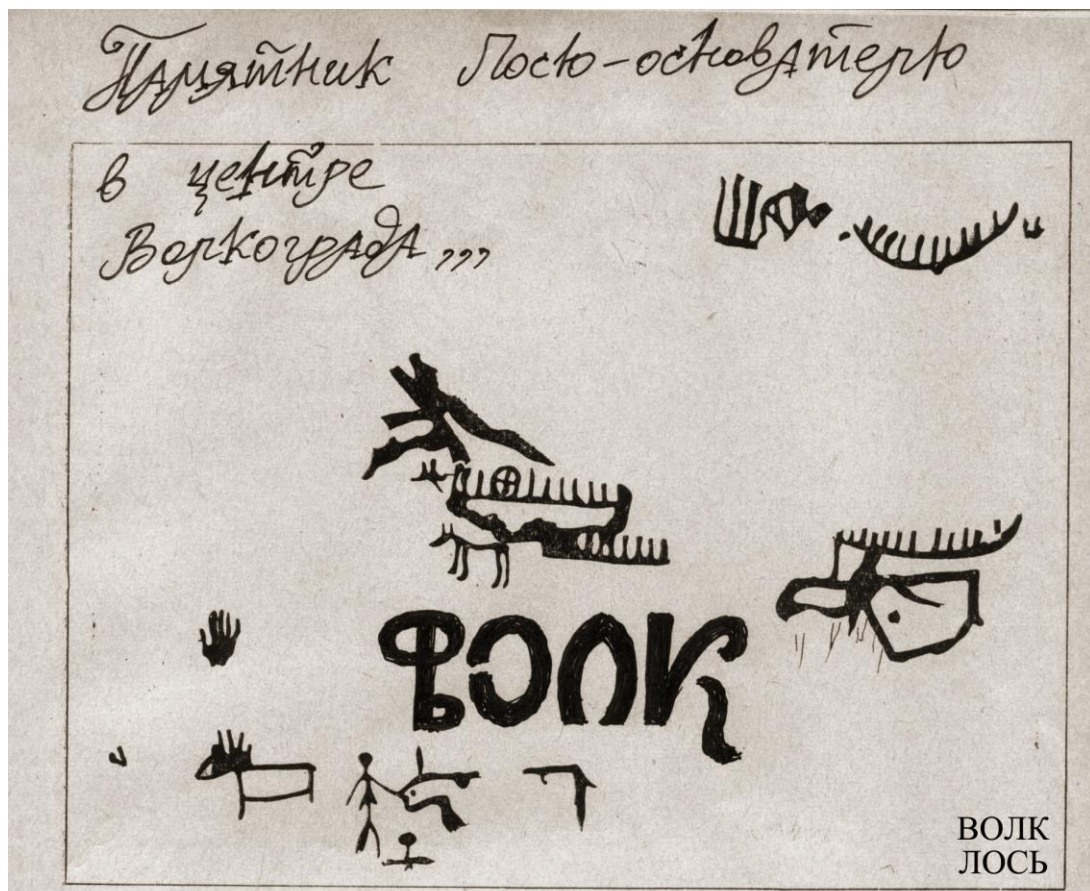 Памятник Лосю-основателю
в центре
Волкограда,,,
ВОЛК
ВОЛК
ЛОСЬ